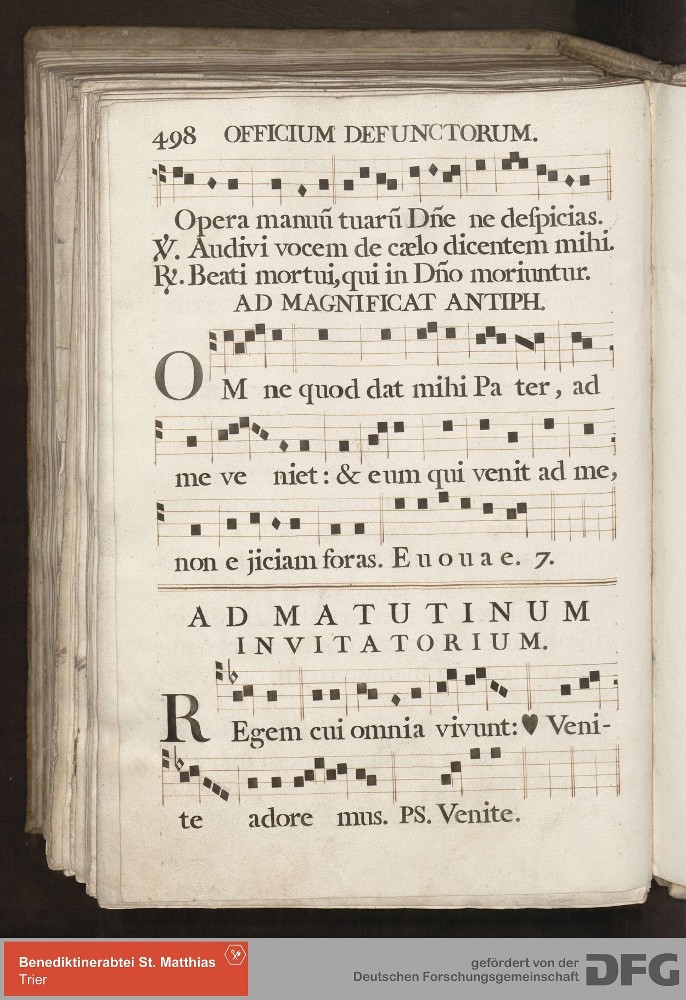 498 OFFICIUM DEFUNCTORUM.
Opera manuũ tuarũ Dñe ne deſpicias.
℣. Audivi vocem de cælo dicentem mihi.
℟. Beati mortui, qui in Dño moriuntur.
AD MAGNIFICAT ANTIPH.
OM ne quod dat mihi Pa ter, ad
me ve niet: & eum qui venit ad me,
non e jiciam foras. E u o u a e. 7.
AD MATUTINUM
INVITATORIUM.
REgem cui omnia vivunt: ♥ Veni-
te adore mus. PS. Venite.
Benediktinerabtei St. Matthias
Trier
gefördert von der
Deutschen Forschungsgemeinschaft
DFG